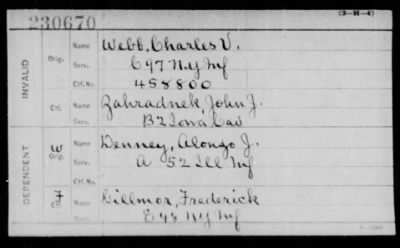 230670
(3-H-4)
INVALID
Orig.
Name Webb, Charles V.
Serv. C 97 N.Y. Inf
Ctf. No. 458800
Ctf.
Name Zahradnek, John J.
Serv. B 2 Iowa Cav
DEPENDENT
W
Orig.
Name Denney, Alonzo J.
Serv. A 52 Ill Inf
Ctf. No.
Name Gillmor, Frederick
Serv. NY Inf